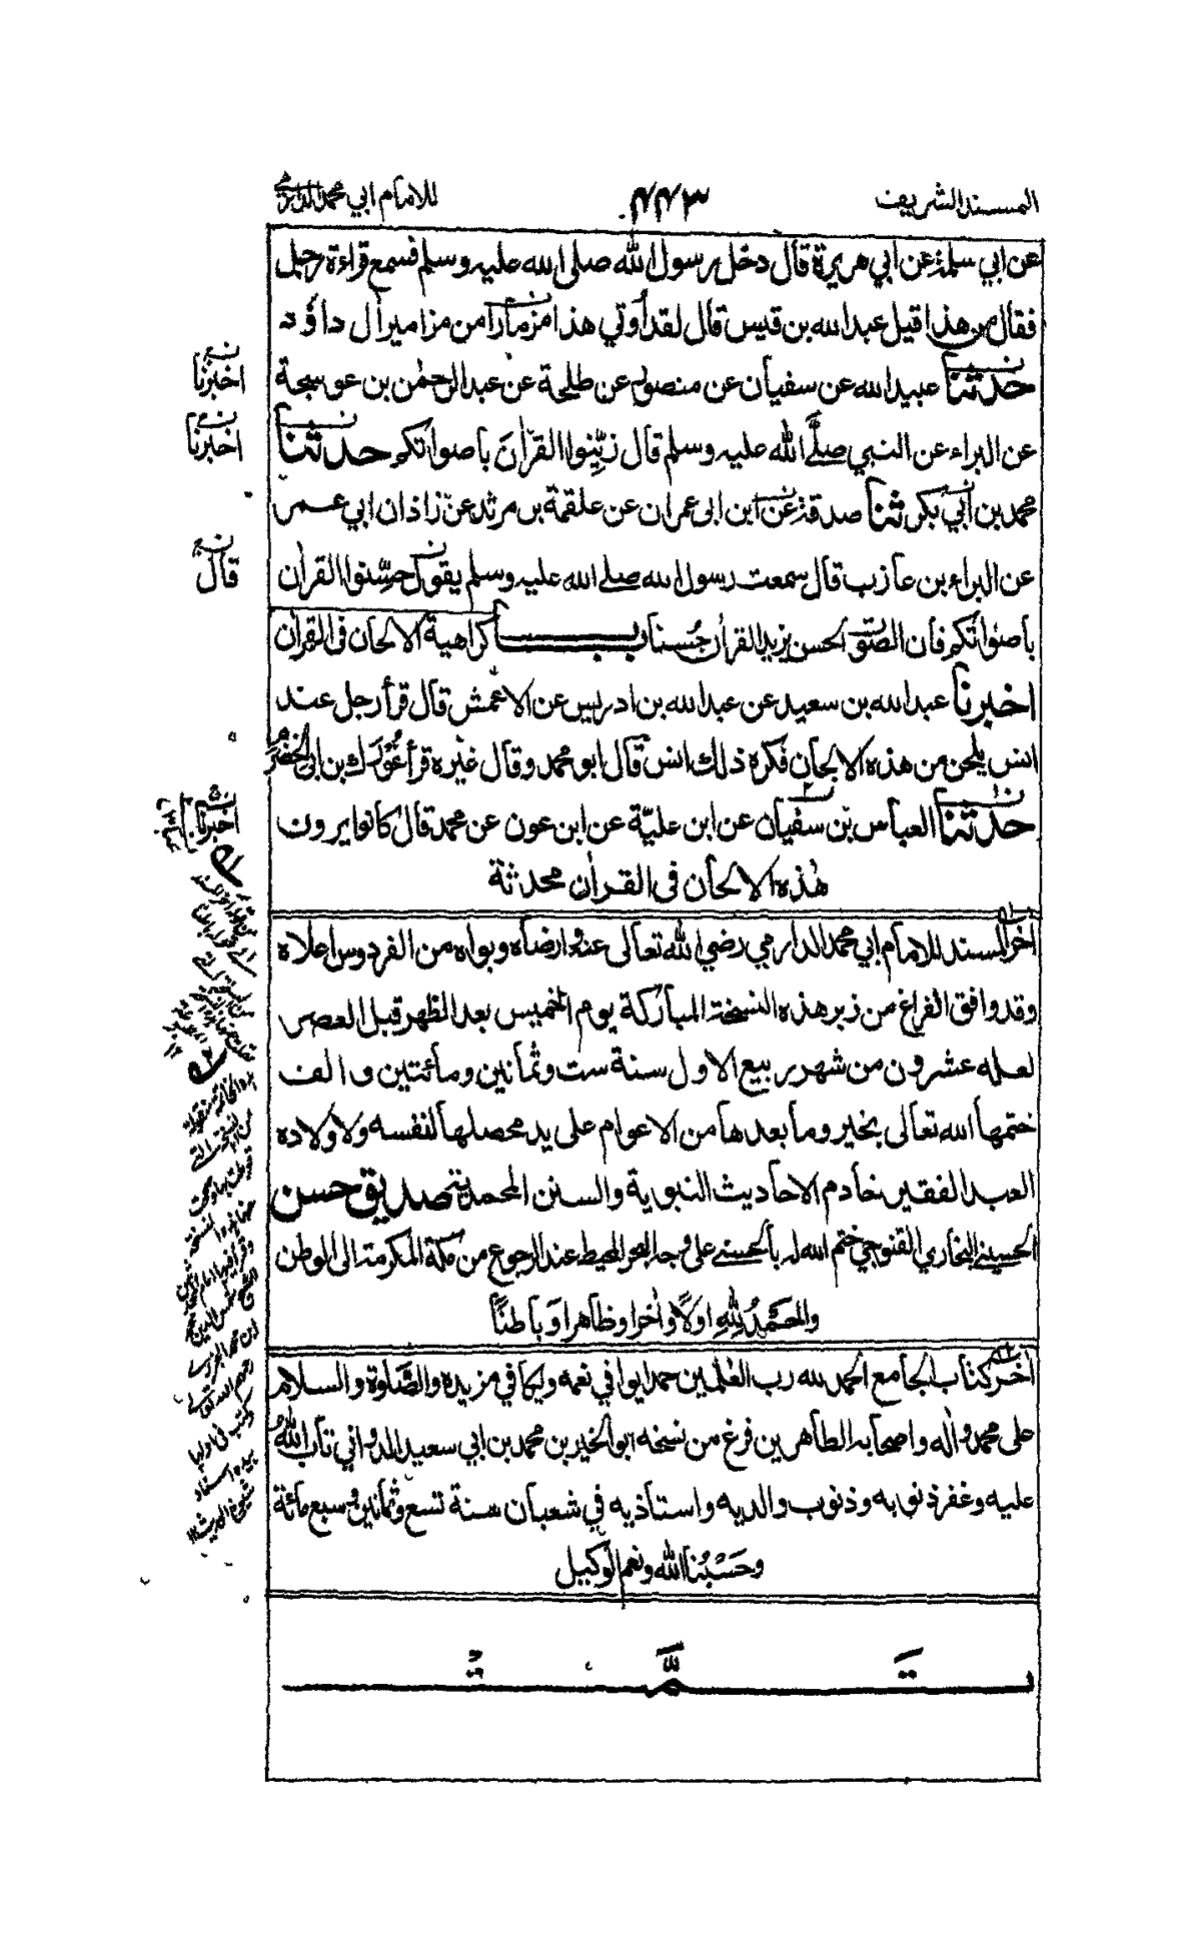 المسند الشريف
٤٤٣
للامام ابي محمد الدارمي
عن ابي سلمة عن ابي هريرة قال دخل رسول الله صلى الله عليه وسلم فسمع قراءة رجل
فقال من هذا قيل عبد الله بن قيس قال لقد أوتي هذا مزمارا من مزامير آل داؤد
حدثنا عبيد الله عن سفيان عن منصور عن طلحة عن عبد الرحمٰن بن عوسجة
عن البراء عن النبي صلى الله عليه وسلم قال زيّنوا القرآن باصواتكم حدثنا
محمد بن أبي بكر ثنا صدقة عن ابن ابى عمران عن علقمة بن مرثد عن زاذان ابي عمر
عن البراء بن عازب قال سمعت رسول الله صلى الله عليه وسلم يقول حسّنوا القرآن
باصواتكم فان الصوت الحسن يزيد القرآن حُسنا باب كراهية الالحان فى القرآن
اخبرنا عبد الله بن سعيد عن عبد الله بن ادريس عن الاعمش قال قرأ رجل عند
انس يلحن من هذه الالحان فكره ذلك انس قال ابو محمد وقال غيره قرأ غُوْرَك بن ابى الخضرم
حدثنا العباس بن سفيان عن ابن عليّة عن ابن عون عن محمد قال كانوا يرون
هٰذه الالحان فى القرآن محدثة
اخر المسند للامام ابي محمد الدارمي رضي الله تعالى عنه وارضاه وبواه من الفردوس اعلاه
وقد وافق الفراغ من زبر هذه النسخة المباركة يوم الخميس بعد الظهر قبل العصر
لعله عشرون من شهر ربيع الاول سنة ست وثمانين ومائتين والف
ختمها الله تعالى بخير وما بعدها من الاعوام على يد محصلها لنفسه ولاولاده
العبد الفقير خادم الاحاديث النبوية والسنن المحمدية صديق حسن
الحسيني البخاري القنوجي ختم الله له بالحسنى على وجه البحر المحيط عند الرجوع من مكة المكرمة الى الوطن
والحَمْدُ لِلّٰهِ اولاً وآخرا وظاهرا وباطناً
اخر كتاب الجامع الحمد لله رب العٰلمين حمدا يوافي نعمه ويكافي مزيده والصَّلٰوة والسلام
على محمد وآله واصحابه الطاهرين فرغ من نسخه ابو الخير بن محمد بن ابي سعيد الدواني تاب اللّٰهُ
عليه وغفر ذنوبه وذنوب والديه واستاذيه في شعبان سنة تسع وثمانين وسبع مائة
وحَسْبُنا الله ونعم الوكيل
تَمَّت
اخبرنا
اخبرنا
قال
اخبرنا